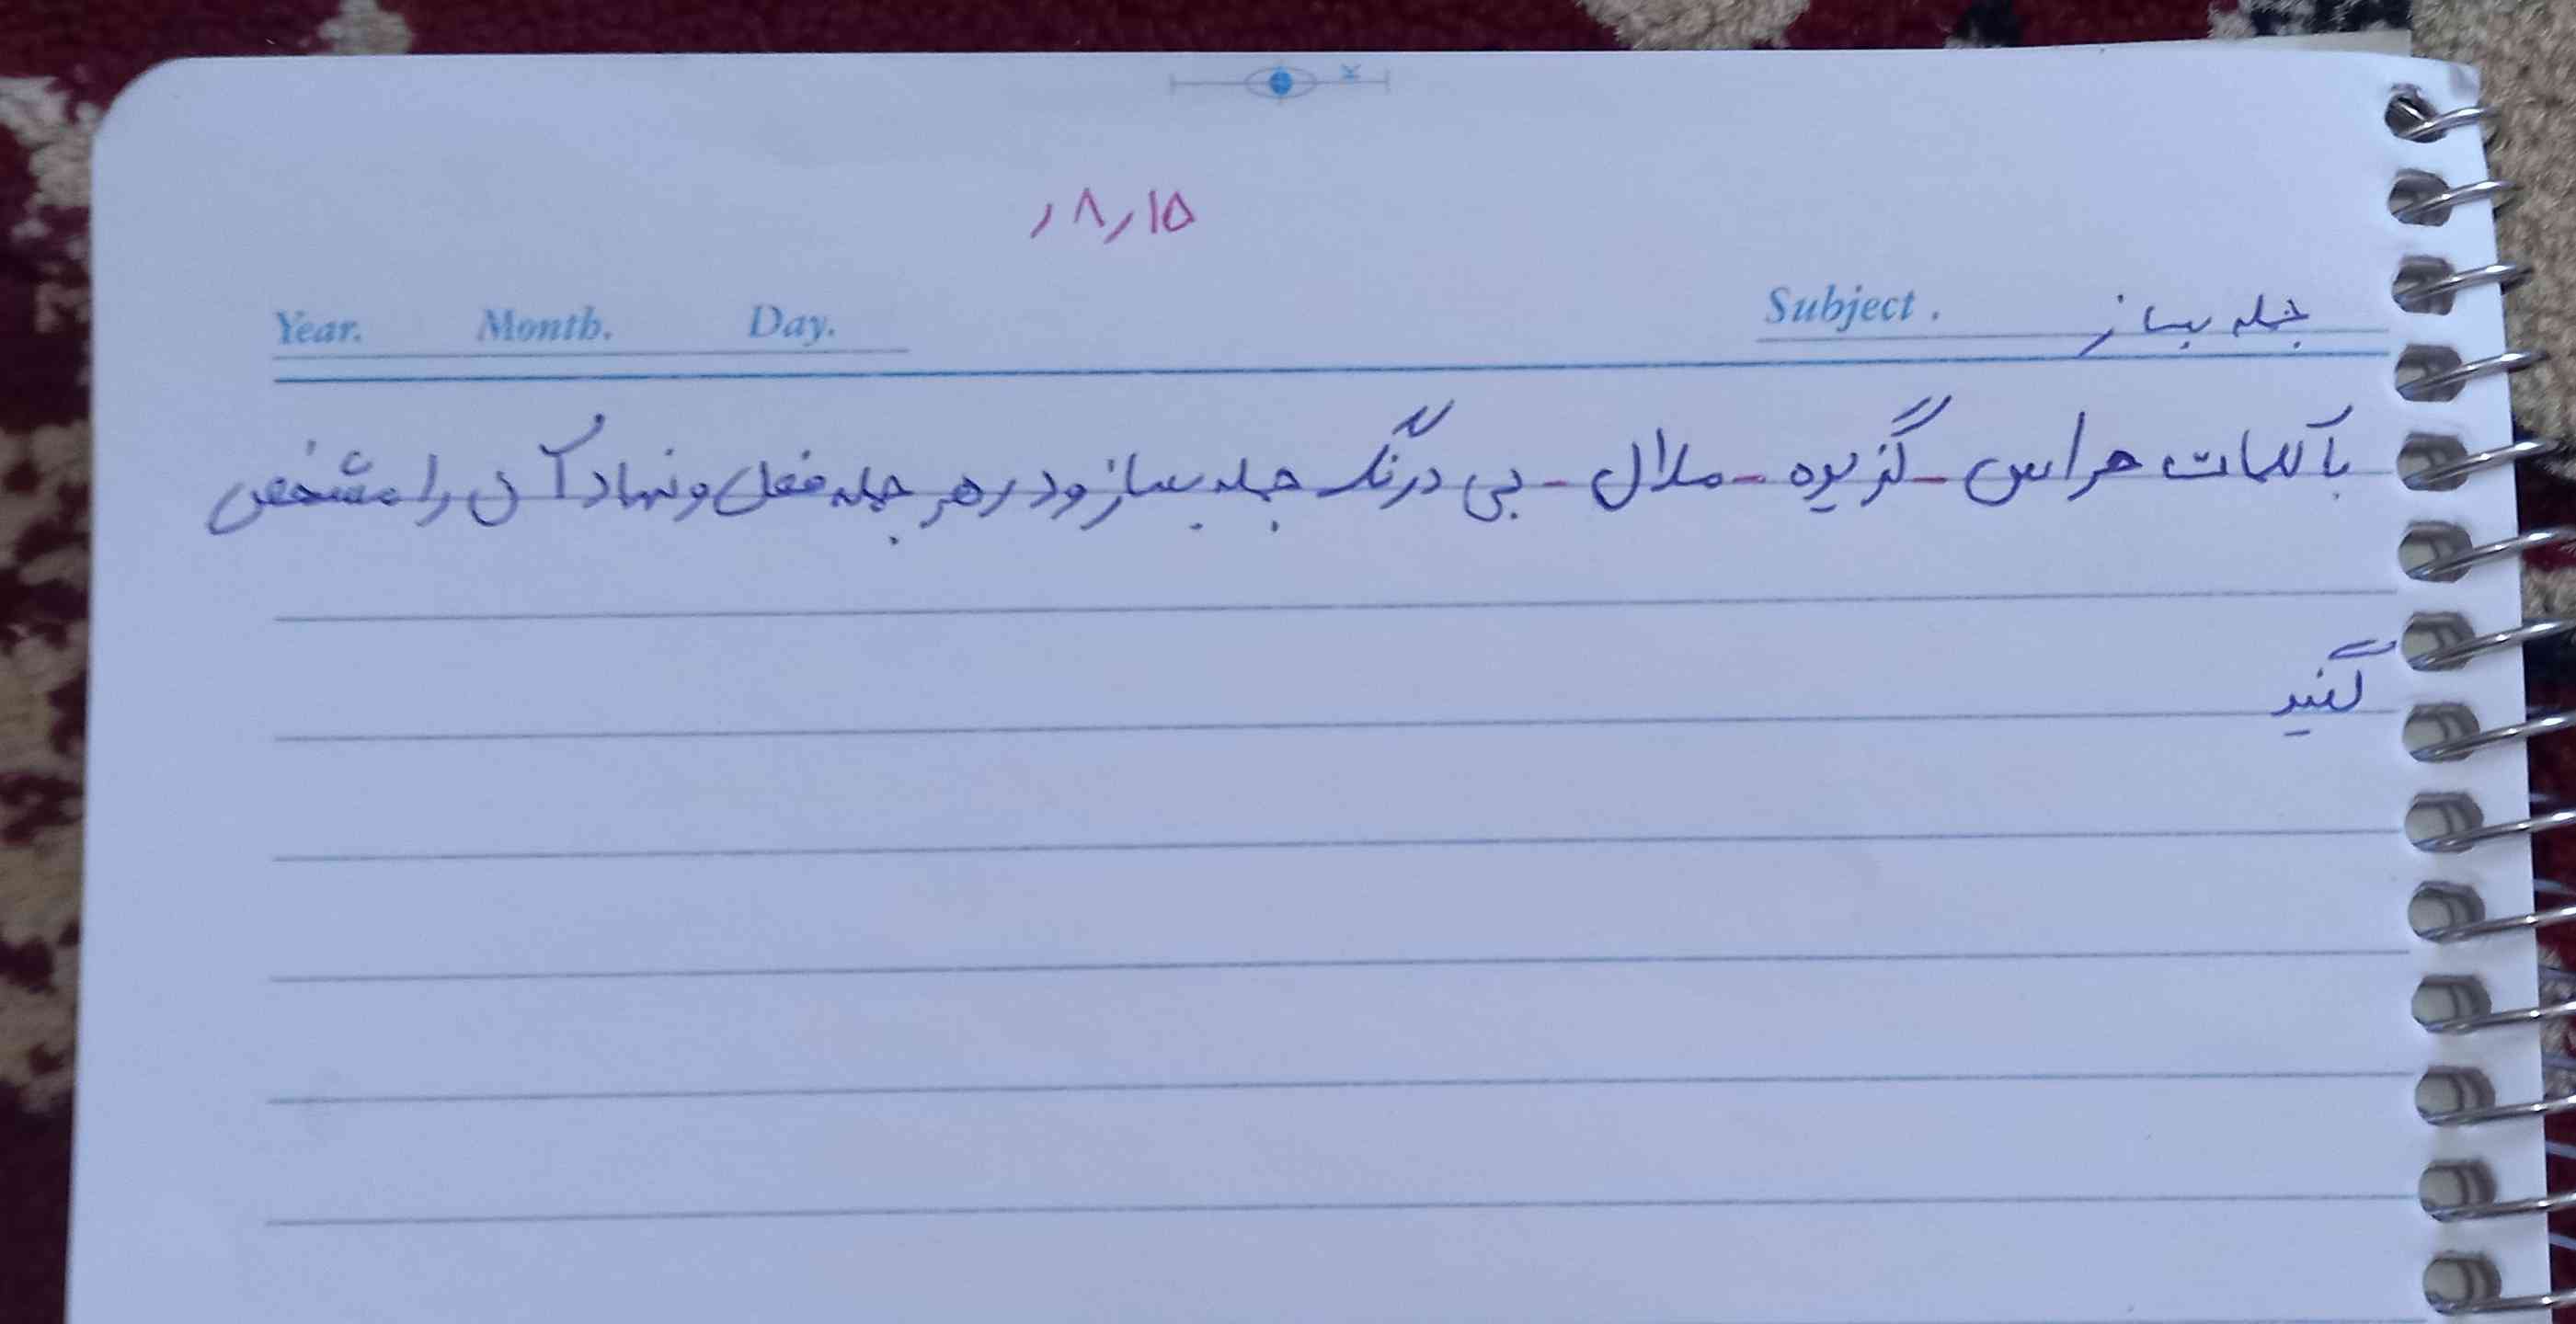 ۱۵ر۸ر
Year. Month. Day. Subject. جمله بساز
با کلمات هراس - گزیده - ملال - بی درنگ جمله بساز و در هر جمله فعل و نهاد آن را مشخص
کنید